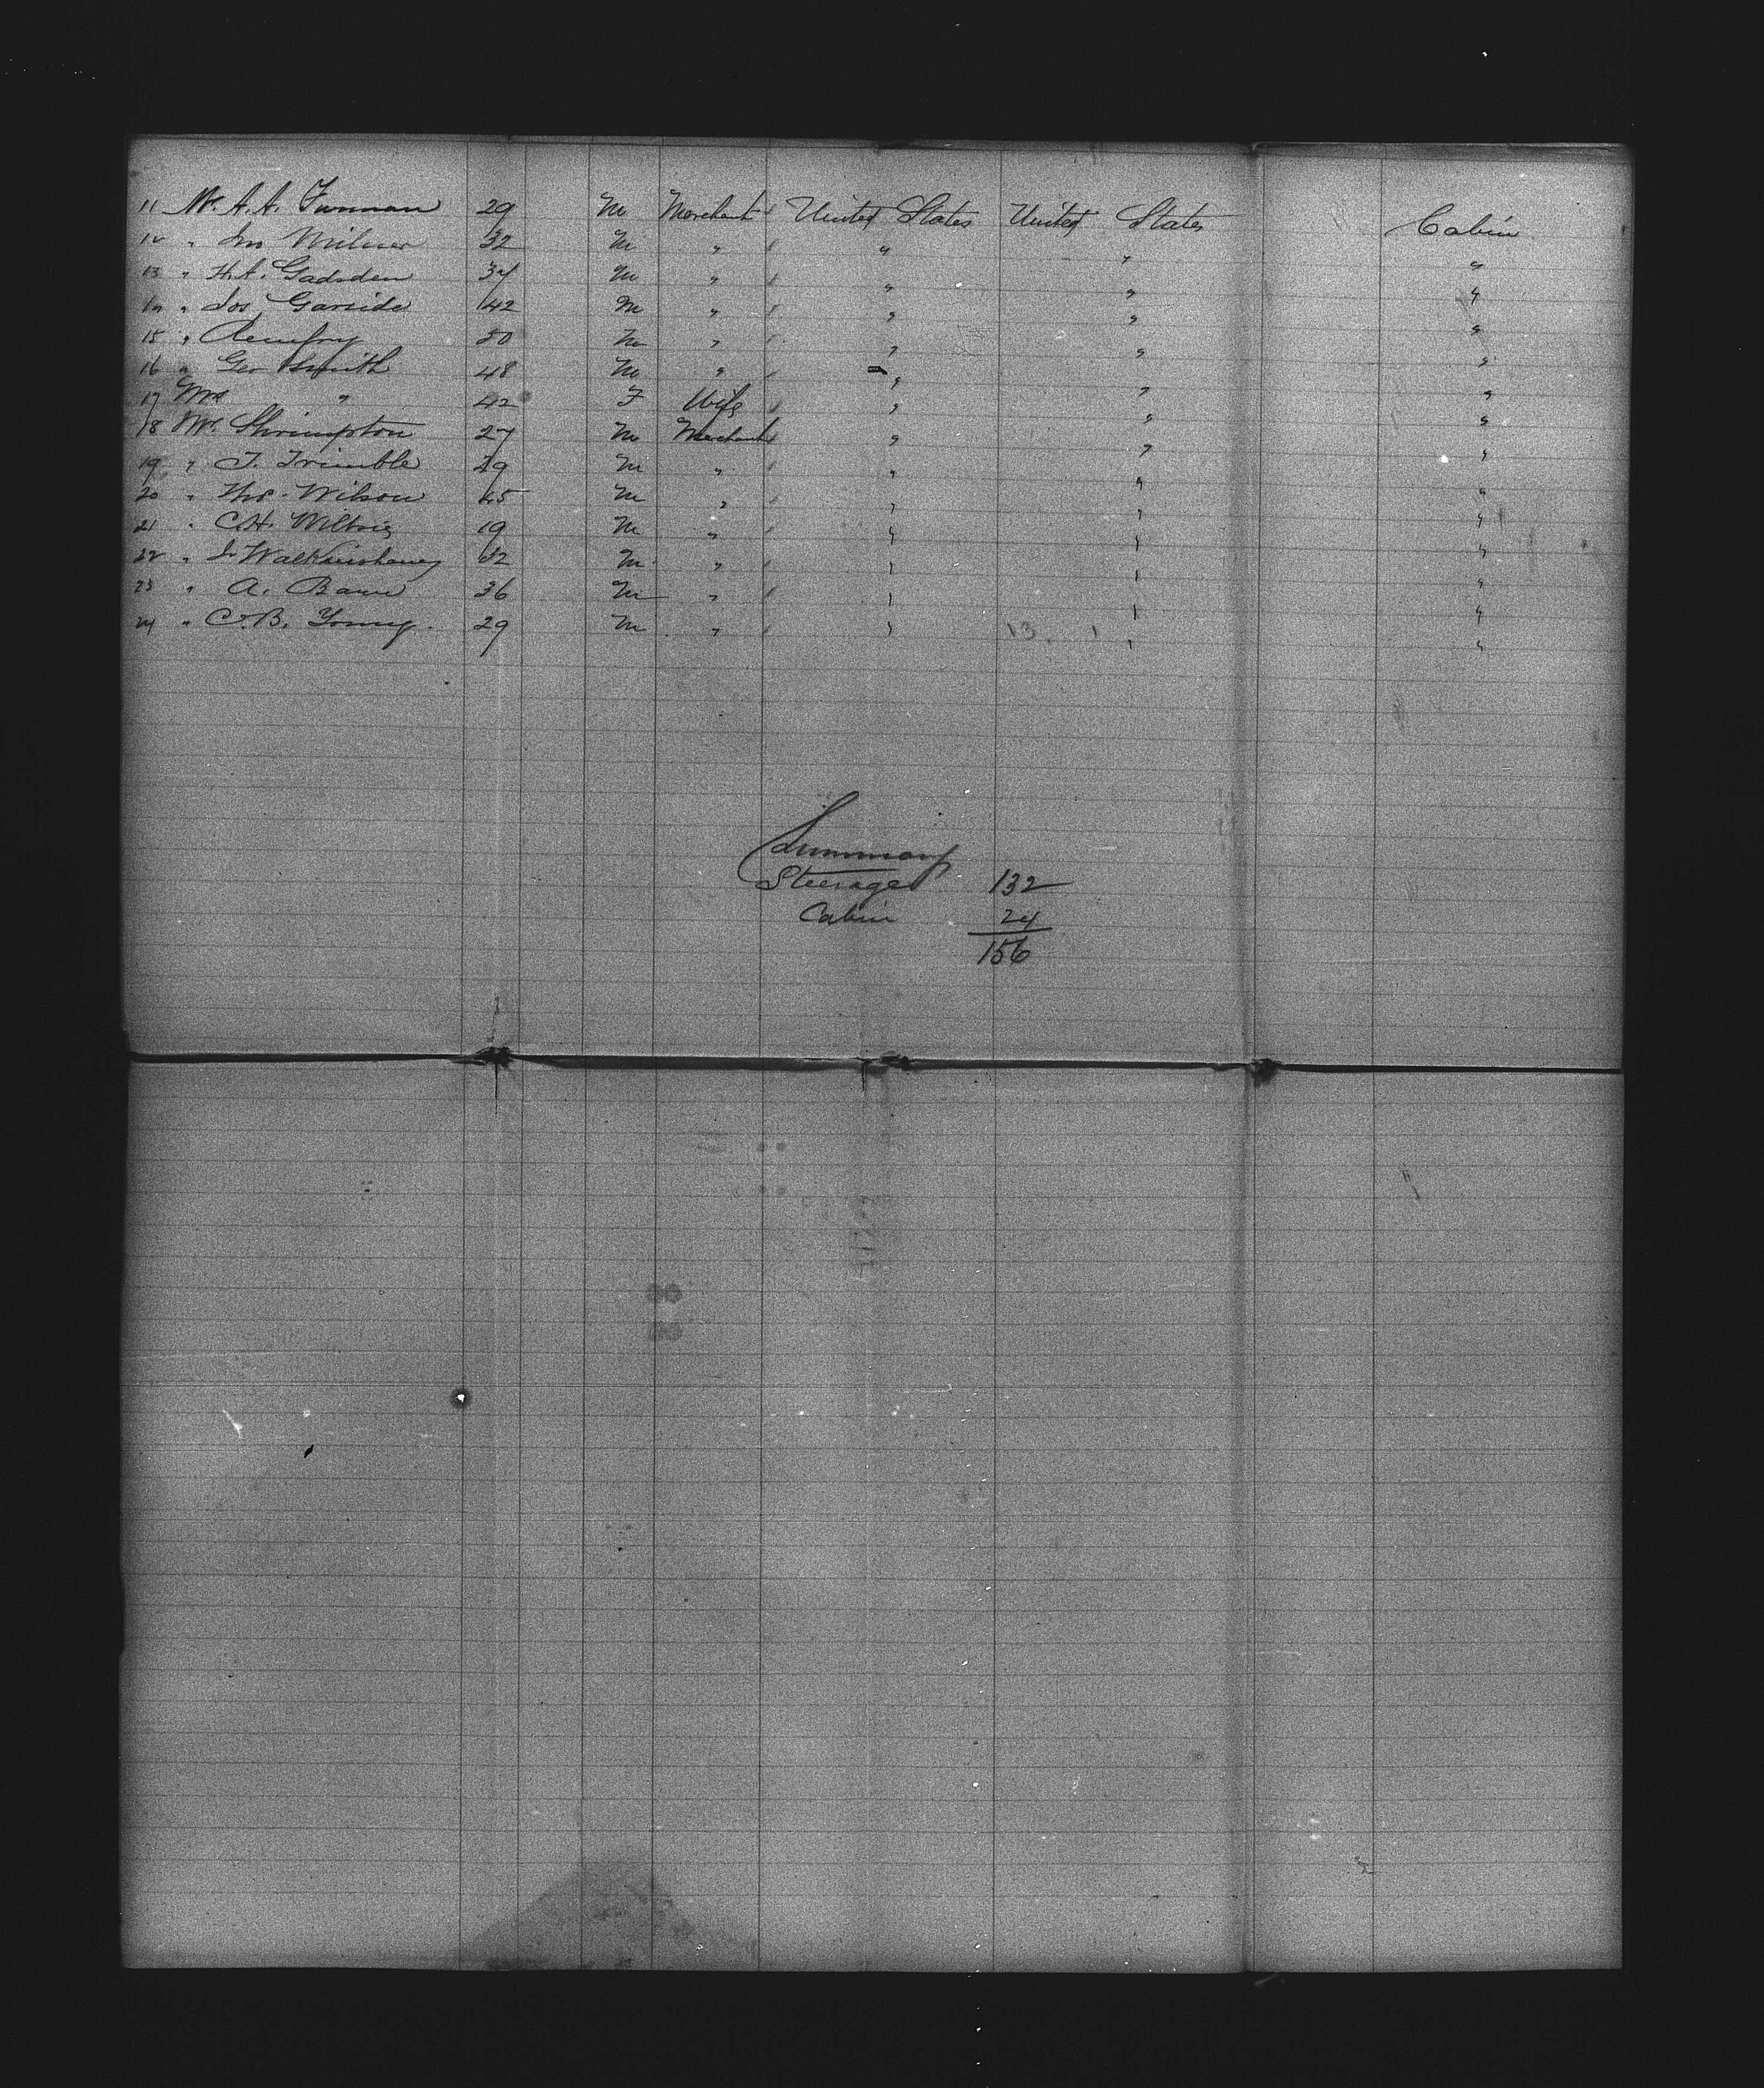 11 Mr A. A. Furman 29 M Merchant United States United States Cabin
12 " Jno Milner 32 M " " " "
13 " H. A. Gadsden 37 M " " " "
14 " Jos Garside 42 M " " " "
15 " 50 M " " " "
16 " Geo Smith 48 M " " " "
17 Mrs " 42 F Wife " " "
18 Mr Shrimpton 27 M Merchant " " "
19 " T. Trimble 29 M " " " "
20 " Thos. Wilson 45 M " " " "
21 " C. H. 19 M " " " "
22 " 32 M " " " "
23 " A. 36 M " " " "
24 " C. B. Young. 29 M " " " "
Summary
Steerage 132
Cabin 24
156